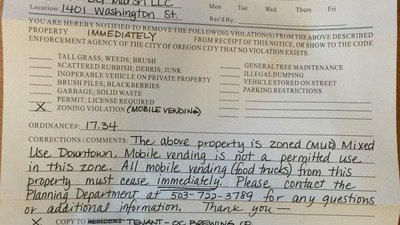 Marsh LLC
Location: 1401 Washington St.
Mon Tues Wed Thurs Fri
Rec'd By:
YOU ARE HEREBY NOTIFIED TO REMOVE THE FOLLOWING VIOLATION(S) FROM THE ABOVE DESCRIBED
PROPERTY IMMEDIATELY FROM RECEIPT OF THIS NOTICE, OR SHOW TO THE CODE
ENFORCEMENT AGENCY OF THE CITY OF OREGON CITY THAT NO VIOLATION EXISTS.
TALL GRASS; WEEDS; BRUSH
SCATTERED RUBBISH; DEBRIS; JUNK
INOPERABLE VEHICLE ON PRIVATE PROPERTY
BRUSH PILES; BLACKBERRIES
GARBAGE; SOLID WASTE
PERMIT; LICENSE REQUIRED
X ZONING VIOLATION (MOBILE VENDING)
GENERAL TREE MAINTENANCE
ILLEGAL DUMPING
VEHICLE STORED ON STREET
PARKING RESTRICTIONS
ORDINANCE#: 17.34
CORRECTIONS / COMMENTS: The above property is zoned (MUD) Mixed
Use Downtown. Mobile vending is not a permitted use
in this zone. All mobile vending (food trucks) from this
property must cease immediately. Please contact the
Planning Department at 503-722-3789 for any questions
or additional information. Thank you —
X COPY TO RESIDENT TENANT - OC BREWING CO